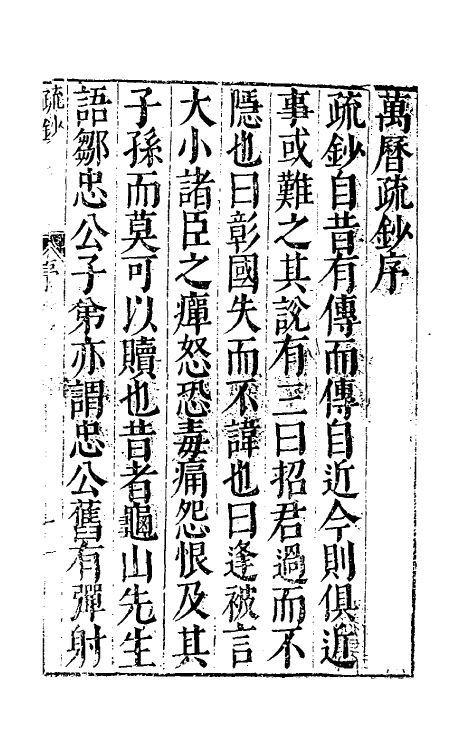 萬曆疏鈔序
疏鈔自昔有傳而傳自近今則俱近
事或難之其説有三曰招君過而不
隱也曰彰國失而不諱也曰逢被言
大小諸臣之瘅怒恐毒痛怨恨及其
子孫而莫可以贖也昔者龜山先生
語鄒忠公子弟亦謂忠公舊有彈射
疏鈔
序
一